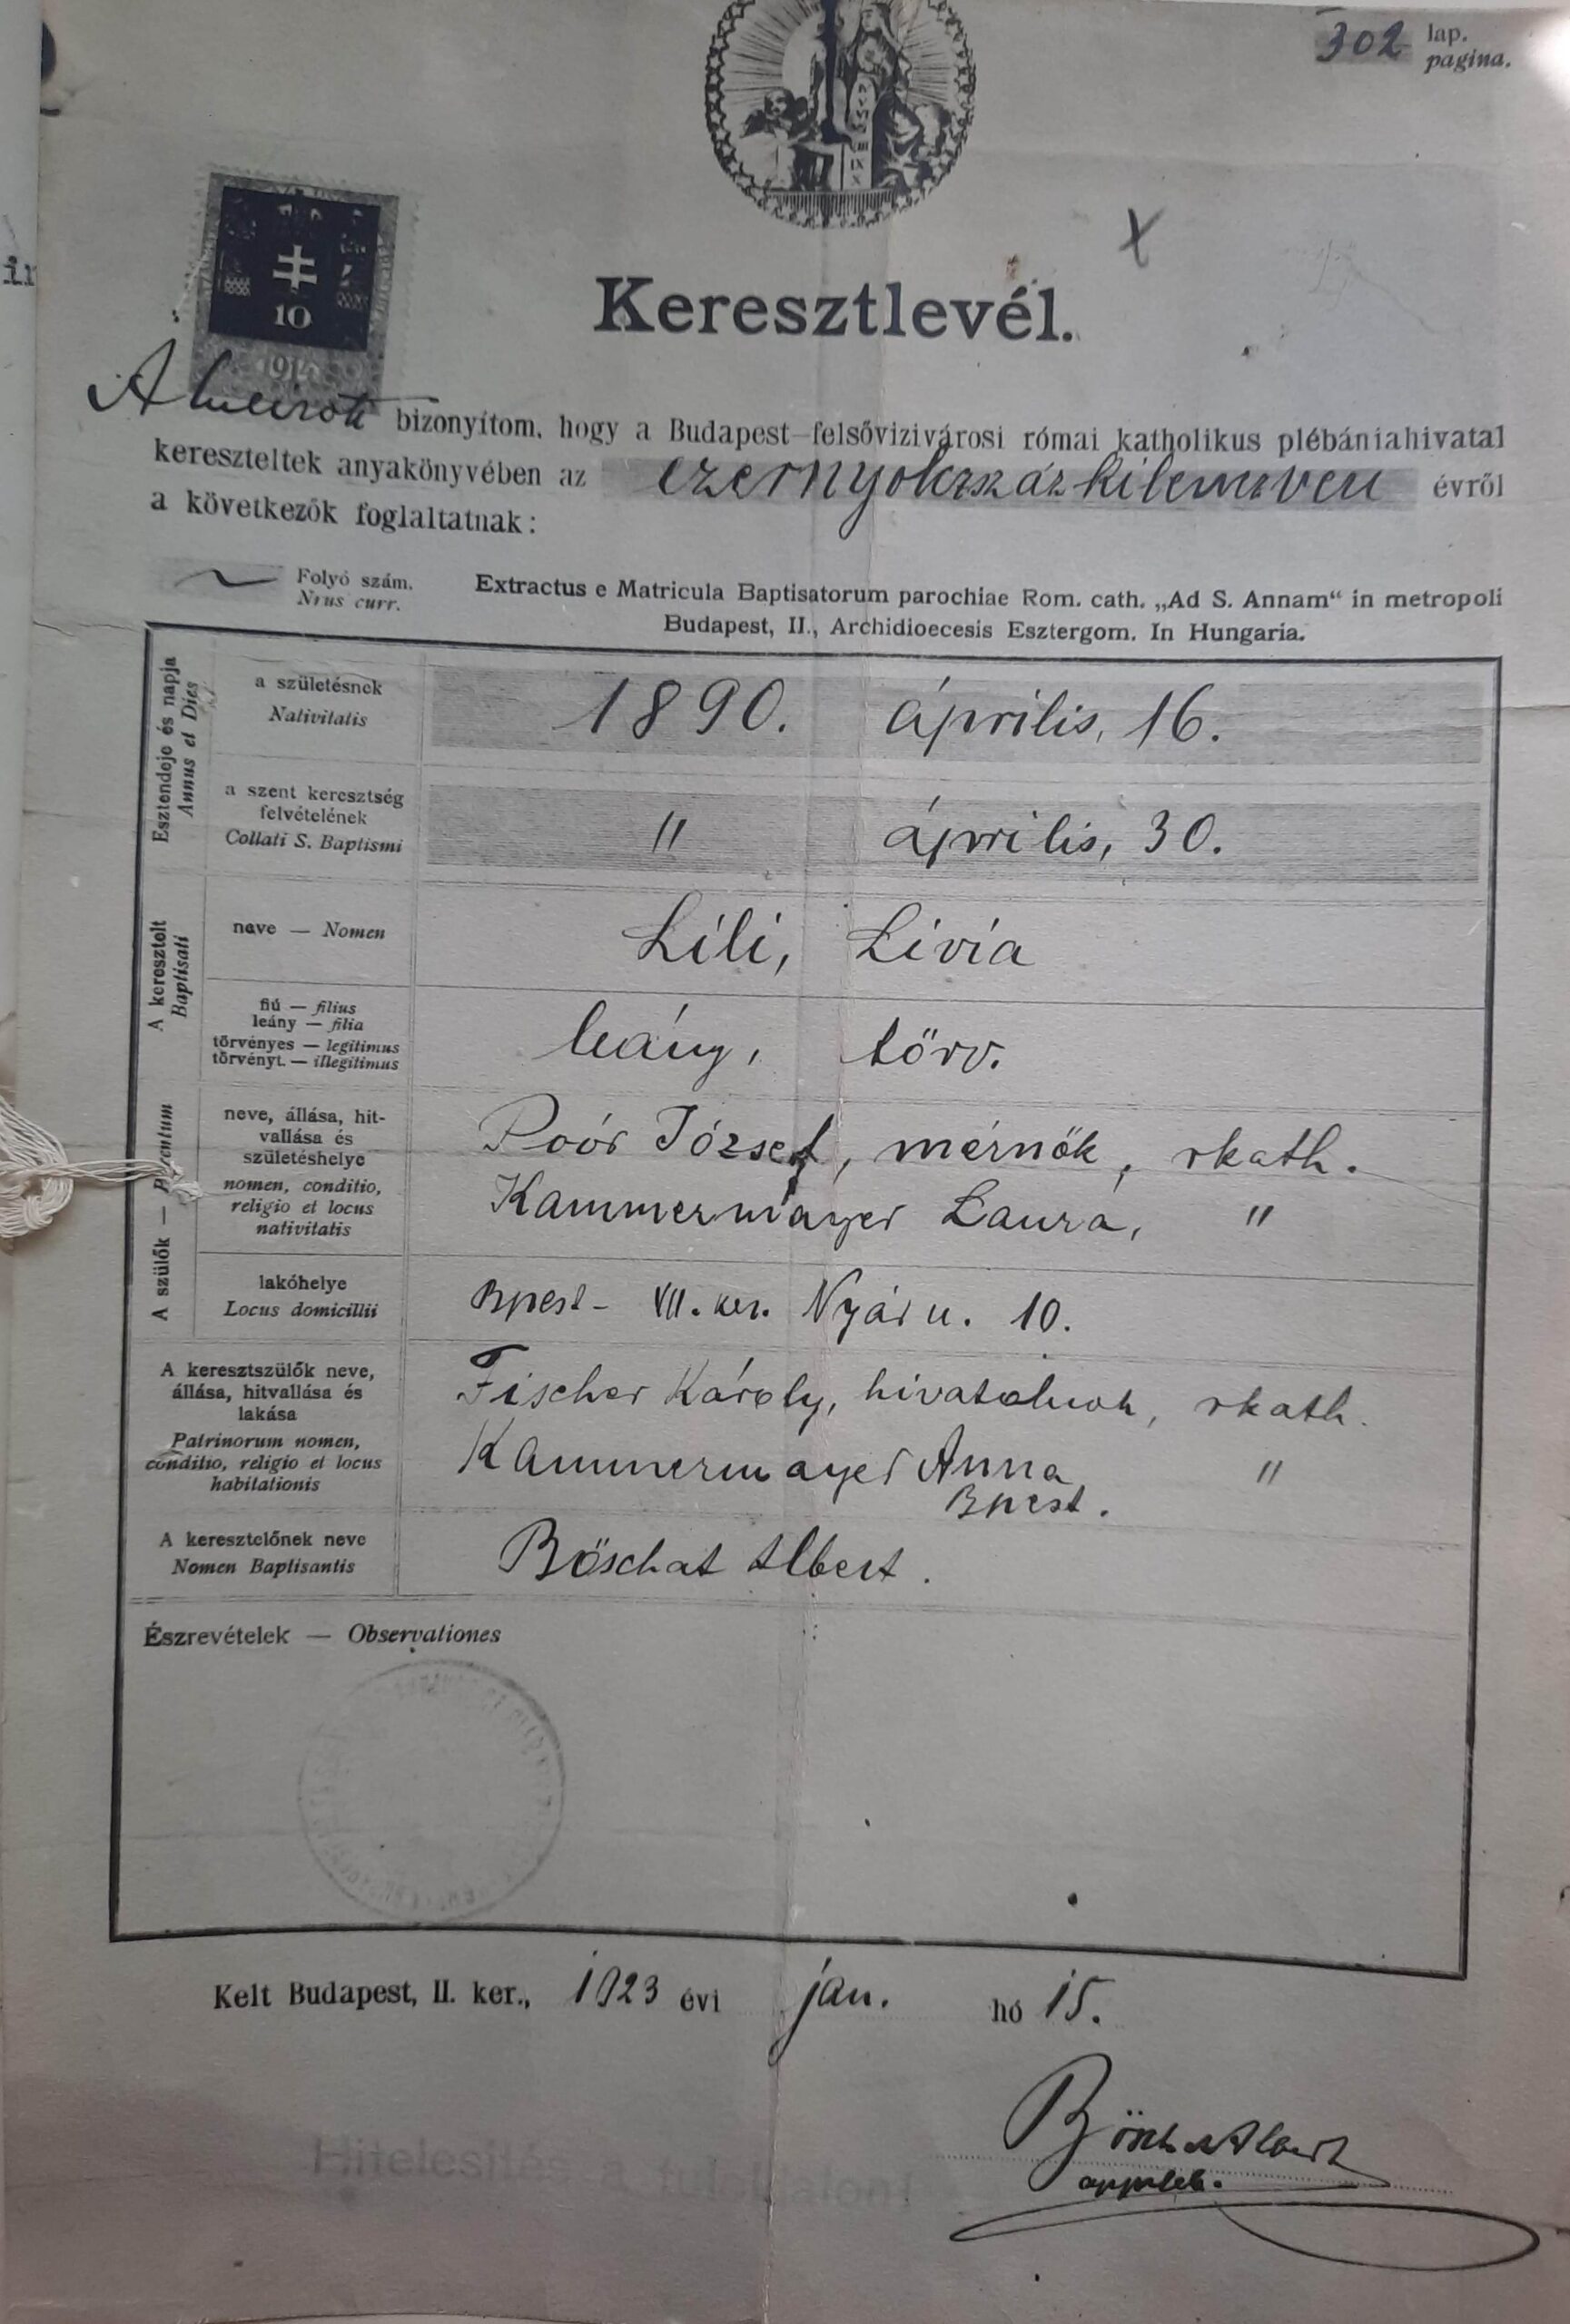 302 lap.
pagina.
10
Keresztlevél.
Alulírott bizonyítom, hogy a Budapest-felsővizivárosi római katholikus plébániahivatal
kereszteltek anyakönyvében az ezernyolczszázkilenczven évről
a következők foglaltatnak:
Folyó szám.
Nrus curr.
Extractus e Matricula Baptisatorum parochiae Rom. cath. „Ad S. Annam“ in metropoli
Budapest, II., Archidioecesis Esztergom. In Hungaria.
Esztendeje és napja
Annus et Dies
a születésnek
Nativitatis
1890. április, 16.
a szent keresztség
felvételének
Collati S. Baptismi
" április, 30.
A keresztelt
Baptisati
neve — Nomen
Lili, Livia
fiú — filius
leány — filia
törvényes — legitimus
törvényt. — illegitimus
leány, törv.
A szülők — Parentum
neve, állása, hit-
vallása és
születéshelye
nomen, conditio,
religio et locus
nativitatis
Poór József, mérnök, rkath.
Kammermayer Laura, "
lakóhelye
Locus domicillii
Bpest - VII. ker. Nyár u. 10.
A keresztszülők neve,
állása, hitvallása és
lakása
Patrinorum nomen,
conditio, religio et locus
habitationis
Fischer Károly, hivatalnok, rkath.
Kammermayer Anna "
Bpest.
A keresztelőnek neve
Nomen Baptisantis
Böschat Albert.
Észrevételek — Observationes
Kelt Budapest, II. ker., 1923 évi jan. hó 15.
Böschat Albert